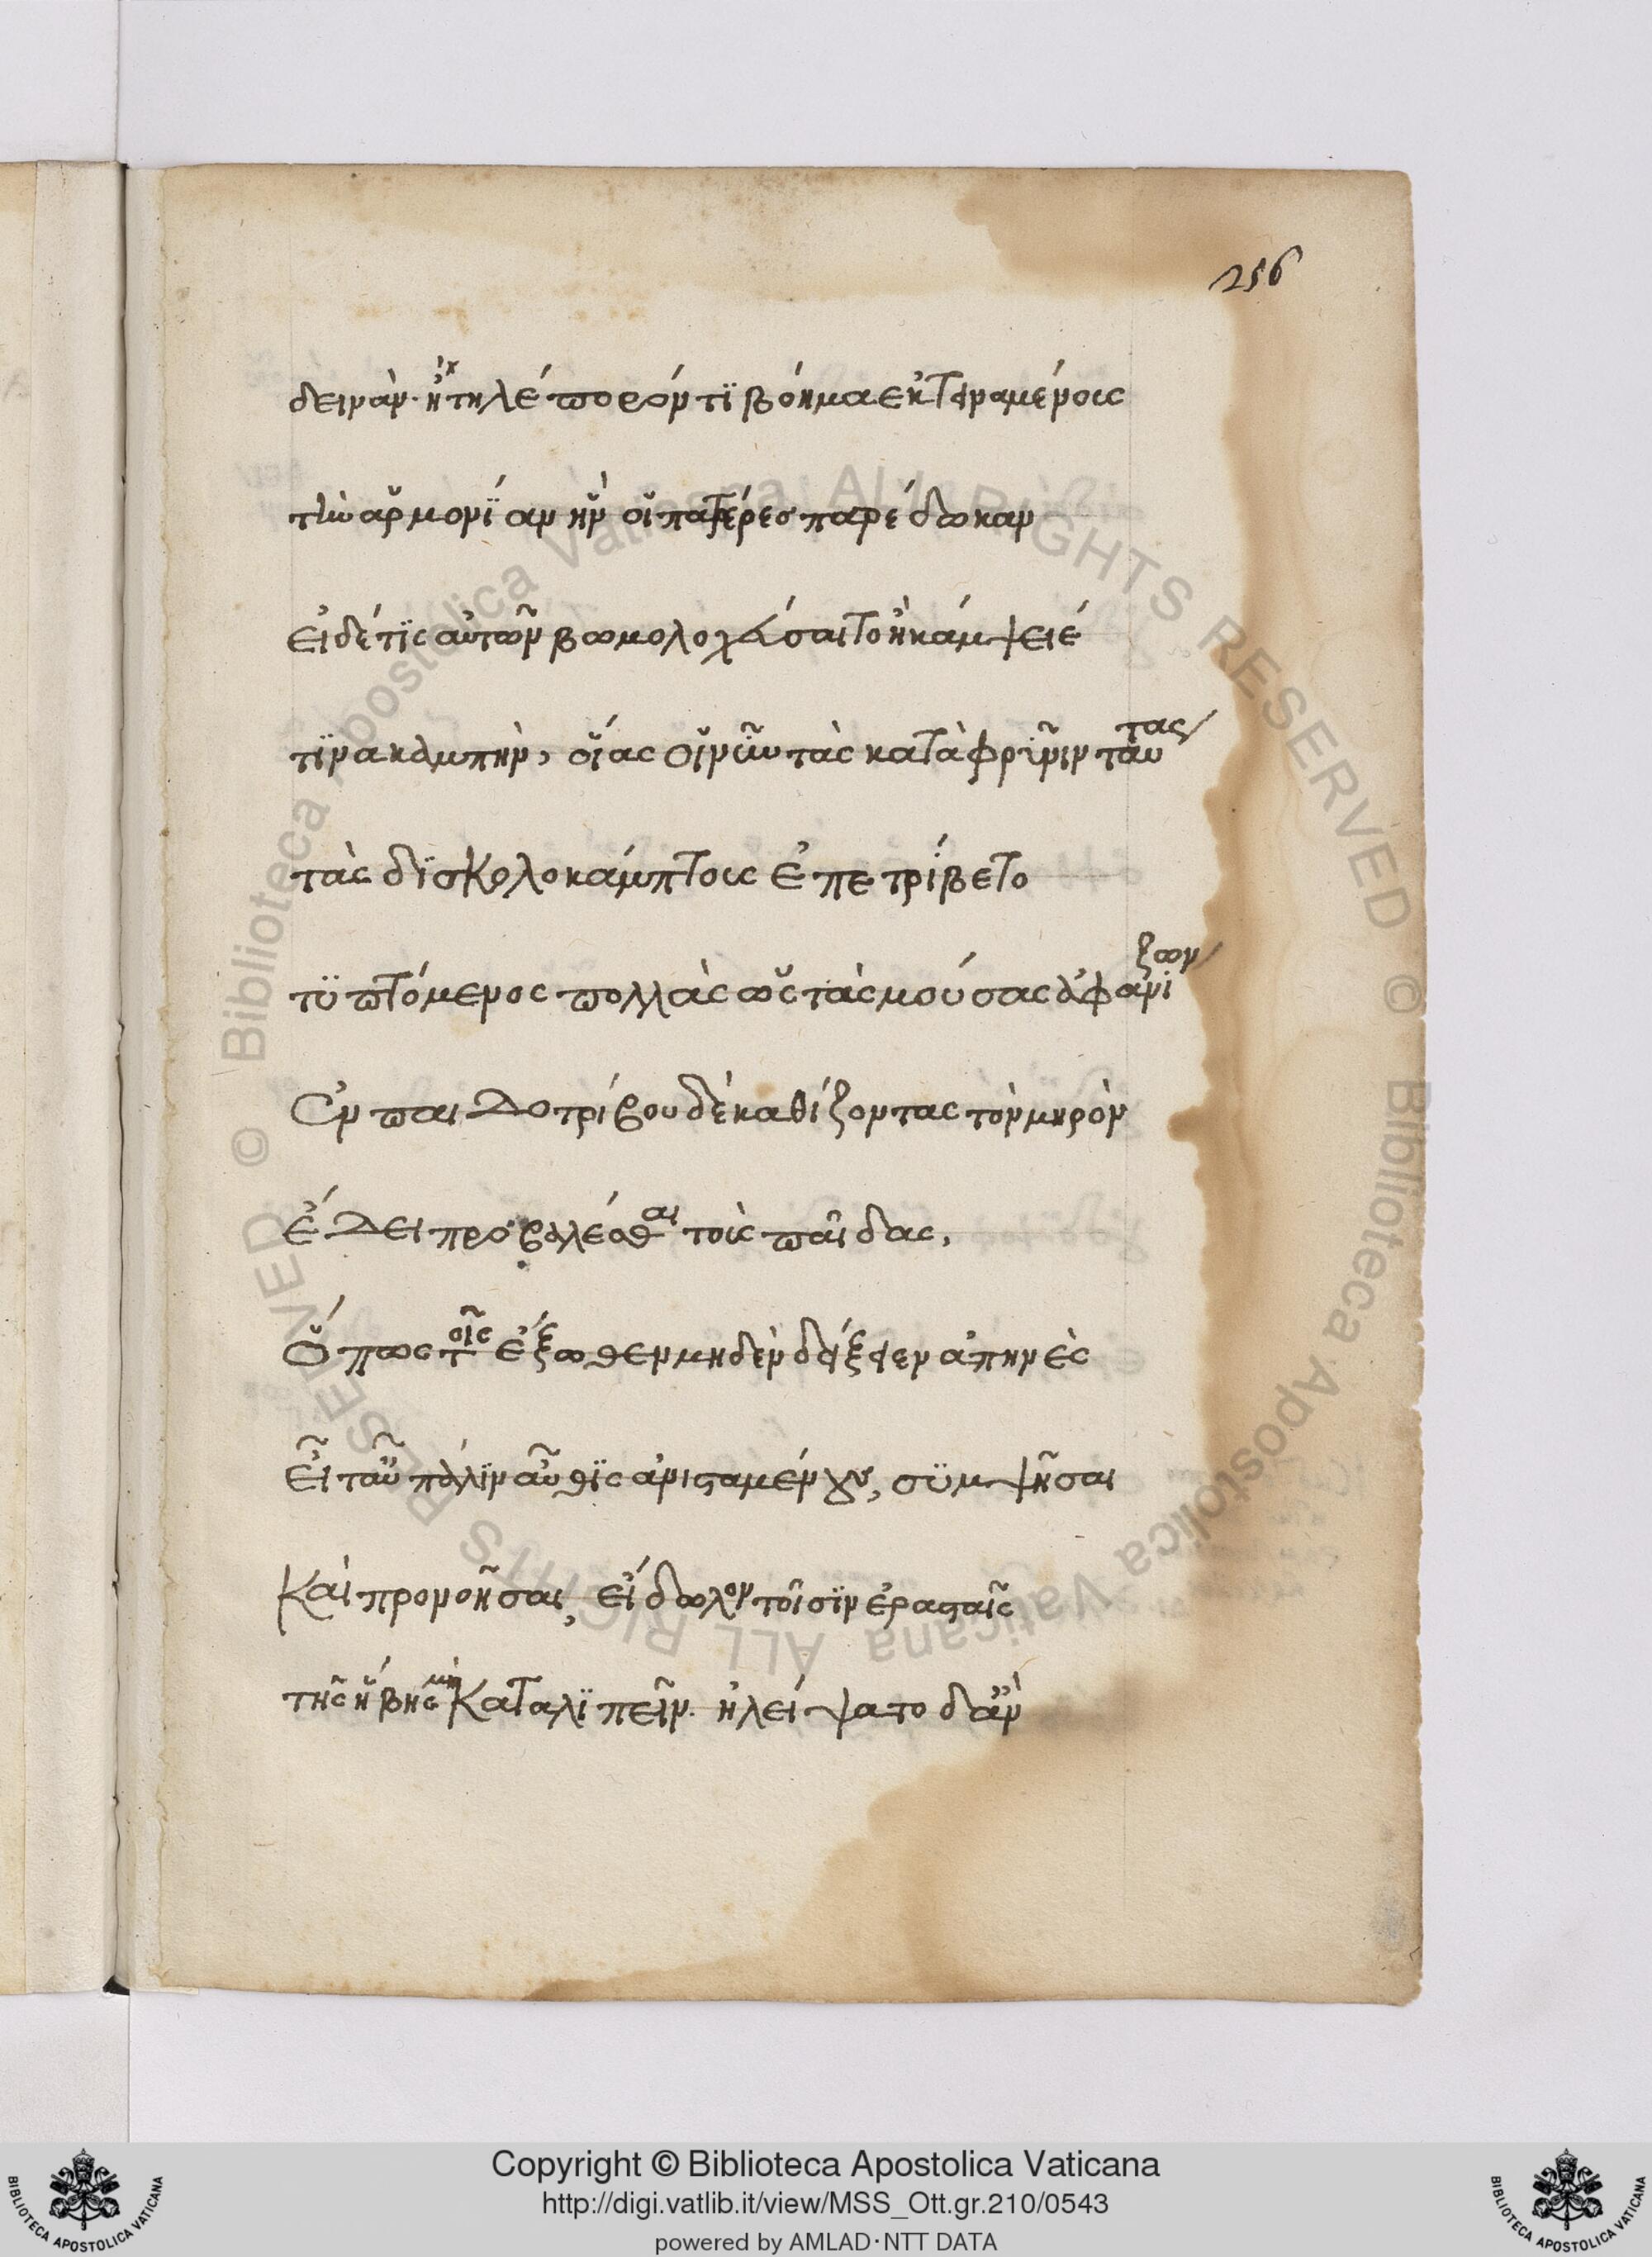 256
δεινὰν· ἤχ τηλέπορόν τϊ βόημα ἐκτειναμένοις
τὴν ἁρμονΐαν ἣν οἱ πατέρες παρέδωκαν
εἰ δέ τϊς αὐτῶν βωμολοχεύσαιτο ἢ κάμψειέ
τϊνα καμπὴν, οἵας οἱ νῦν τὰς κατὰ φρῦνιν ταύτας
τὰς δϊσκολοκάμπτους ἐπετρίβετο
τϋπτόμενος πολλὰς ὡς τὰς μούσας ἀφανίζων
Ἐν παιδοτρίβου δὲ καθίζοντας τὸν μηρὸν
ἔδει προβαλέσθαι τοὺς παῖδας,
ὅπως τοῖς ἔξωθεν μηδὲν δείξειεν ἀπηνὲς
εἶτ αὖ πάλϊν αὖθϊς ἀνισταμένου, σϋμψῆσαι
καὶ προνοῆσαι, εἴδωλον τοῖσϊν ἐρασταῖς
τῆς ἥβης μὴ καταλϊπεῖν. ἠλείψατο δ ἂν
Copyright © Biblioteca Apostolica Vaticana
http://digi.vatlib.it/view/MSS_Ott.gr.210/0543
powered by AMLAD·NTT DATA
BIBLIOTECA APOSTOLICA VATICANA
BIBLIOTECA APOSTOLICA VATICANA
© Biblioteca Apostolica Vaticana ALL RIGHTS RESERVED © Biblioteca Apostolica Vaticana ALL RIGHTS RESERVED